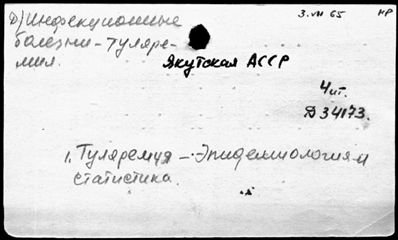 Д) Инфекционные
болезни – Туляре-
мия.
3.VII 65
НР
Якутская АССР
Чит.
Д34173.
1. Туляремия – Эпидемиология и
статистика.